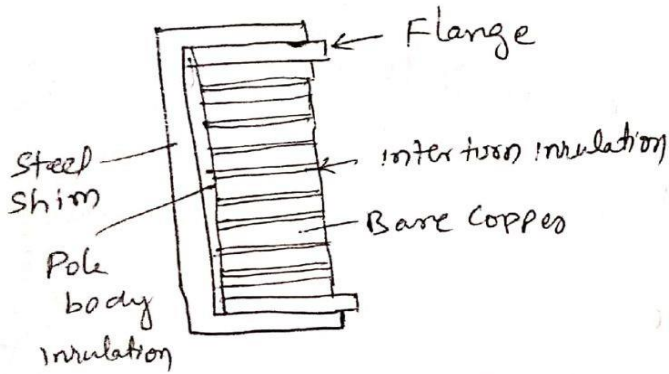 Flange
Steel
Shim
inter turn insulation
Bare Copper
Pole
body
insulation